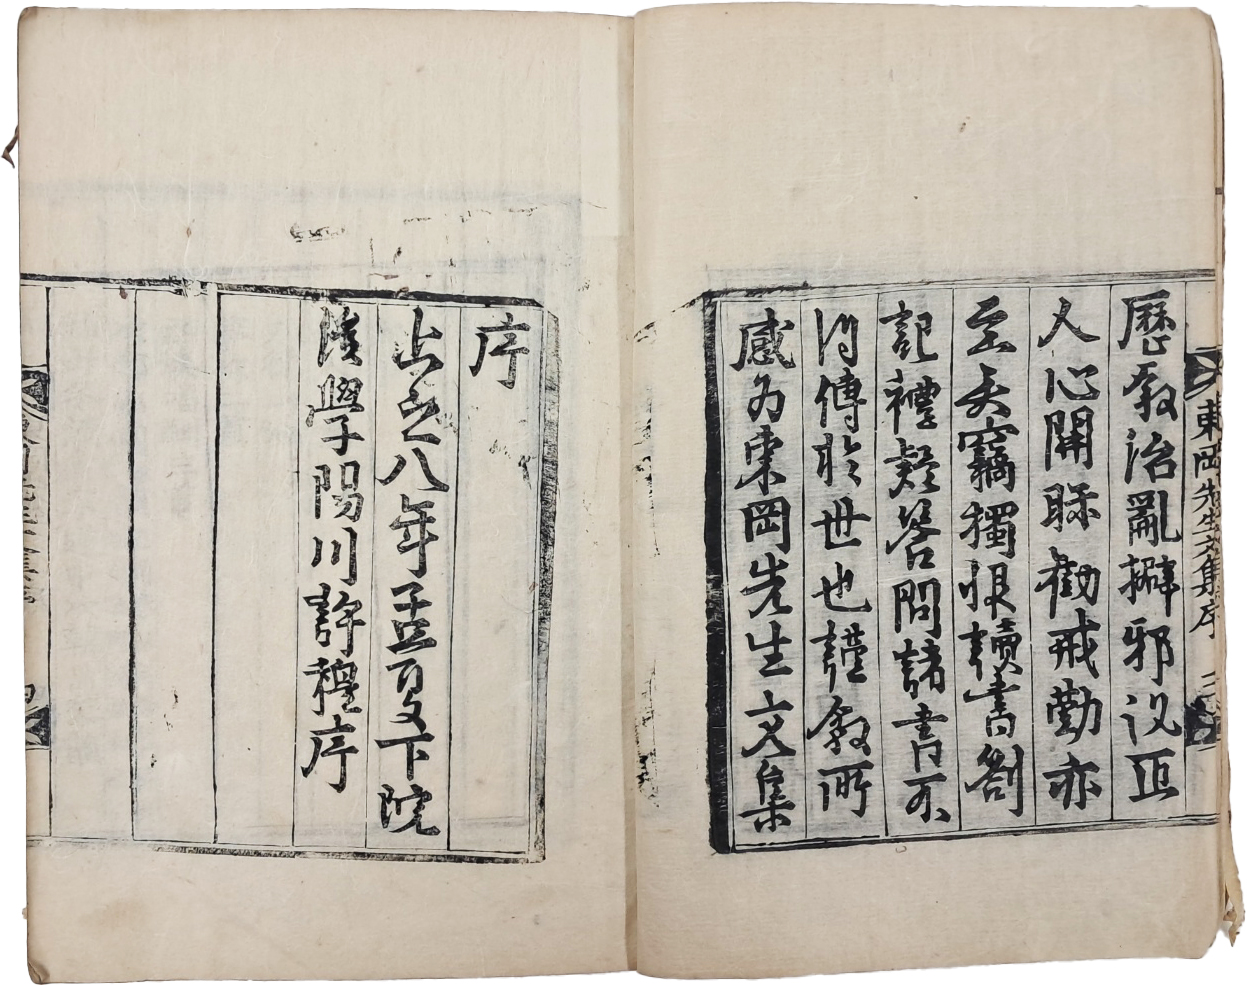 東岡先生文集序
歷敘治亂擗邪議正
人心開眎勸戒勤亦
至矣竊獨恨讀書劄
記禮疑答問諸書不
得傳於世也謹敘所
感为東岡先生文集
序
上之八年孟夏下院
後學陽川許穆序